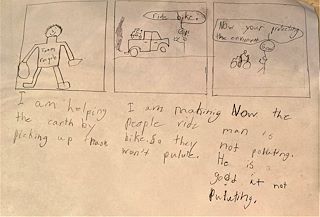 ride bike.
Now your protecting
the enviorment
I am helping
the earth by
picking up trash
I am making
people ride
bike. So they
won't pulute.
Now the
man is
not polluting.
He is
good at not
pulating.